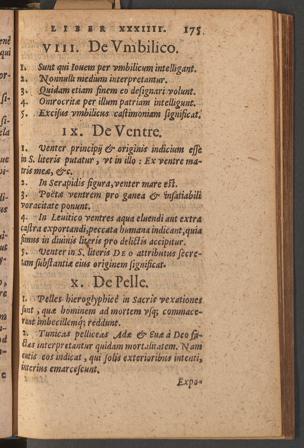 LIBER XXXIIII. 175
VIII. De Vmbilico.
1. Sunt qui Iouem per vmbilicum intelligant.
2. Nonnulli medium interpretantur.
3. Quidam etiam finem eo designari volunt.
4. Omrocritæ per illum patriam intelligunt.
5. Excisus vmbilicus castimoniam significat.
IX. De Ventre.
1. Venter principij & originis indicium esse
in S. literis putatur, vt in illo: Ex ventre ma-
tris meæ, &c.
2. In Serapidis figura, venter mare est.
3. Poëtæ ventrem pro ganea & insatiabili
voracitate ponunt.
4. In Leuitico ventres aqua eluendi aut extra
castra exportandi, peccata humana indicant, quia
fimus in diuinis literis pro delictis accipitur.
5. Venter in S. literis DEO attributus secre-
tam substantiæ eius originem significat.
X. De Pelle.
1. Pelles hieroglyphicè in Sacris vexationes
sunt, quæ hominem ad mortem vsq; commace-
rant imbecillemq; reddunt.
2. Tunicas pelliceas Adæ & Euæ à Deo fa-
ctas interpretantur quidam mortalitatem. Nam
eos indicat, qui solis exterioribus intenti,
interius emarcescunt.
Expa-